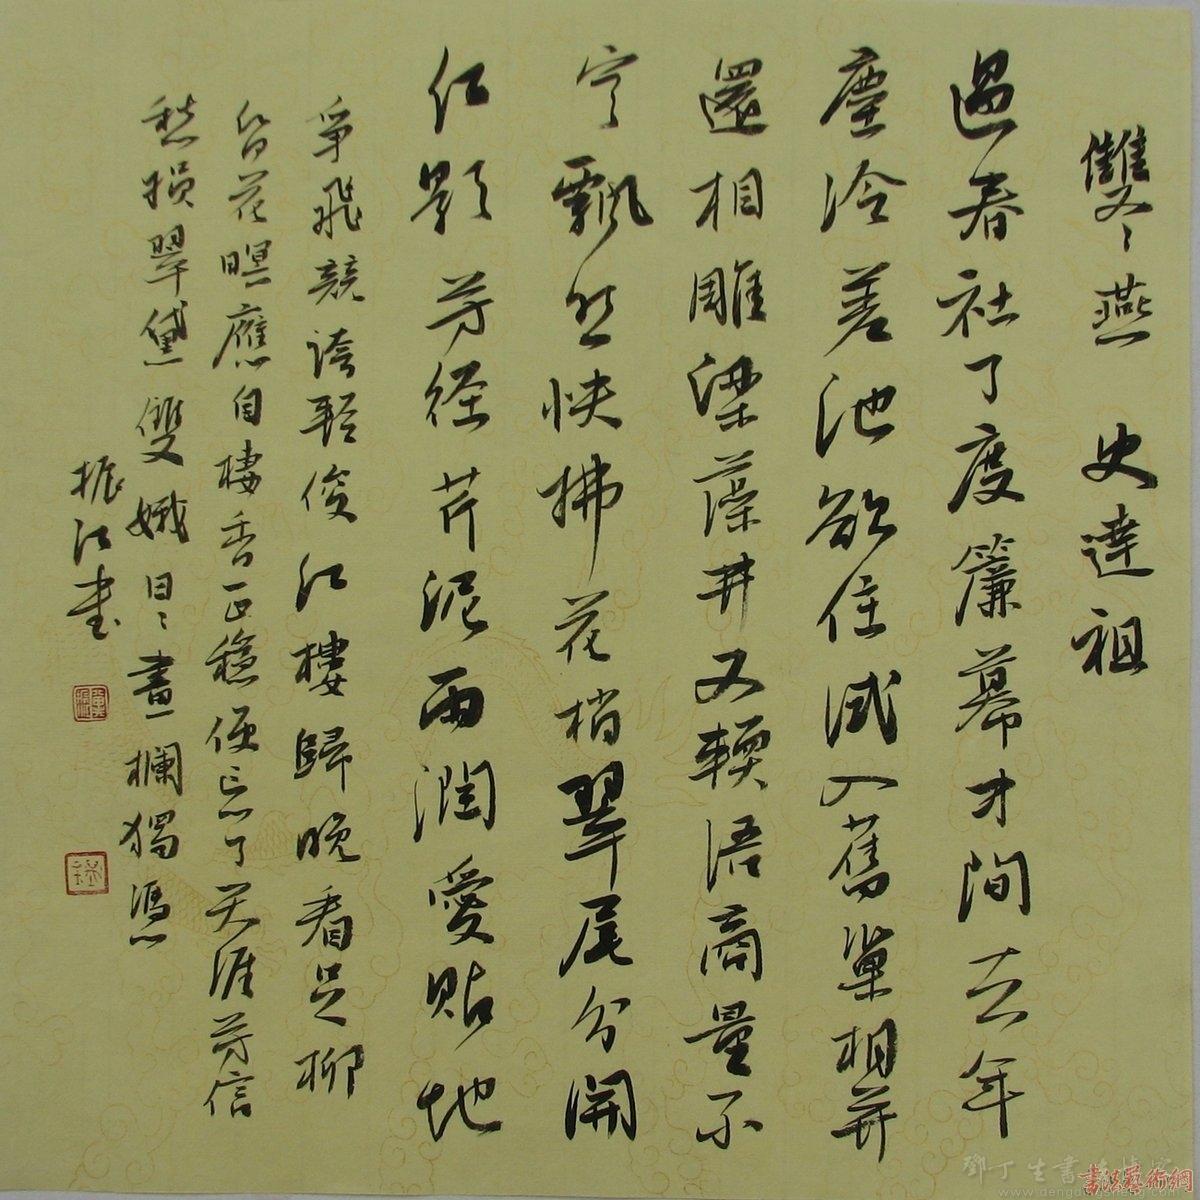 雙〻燕 史達祖
過春社了度簾幕才間去年
塵冷差池欲住試入舊巢相並
還相雕梁藻井又輭語商量不
定飄然快拂花梢翠尾分開
紅影芳徑芹泥雨潤愛貼地
爭飛競誇輕俊紅樓歸晚看足柳
昏花暝應自棲香正穩便忘了天涯芳信
愁損翠黛雙蛾日〻畫欄獨憑
振江書
鄧丁生書
書法藝術網